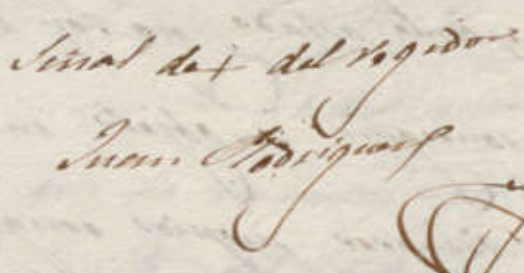 Señal de + del regidor
Juan Rodriguez